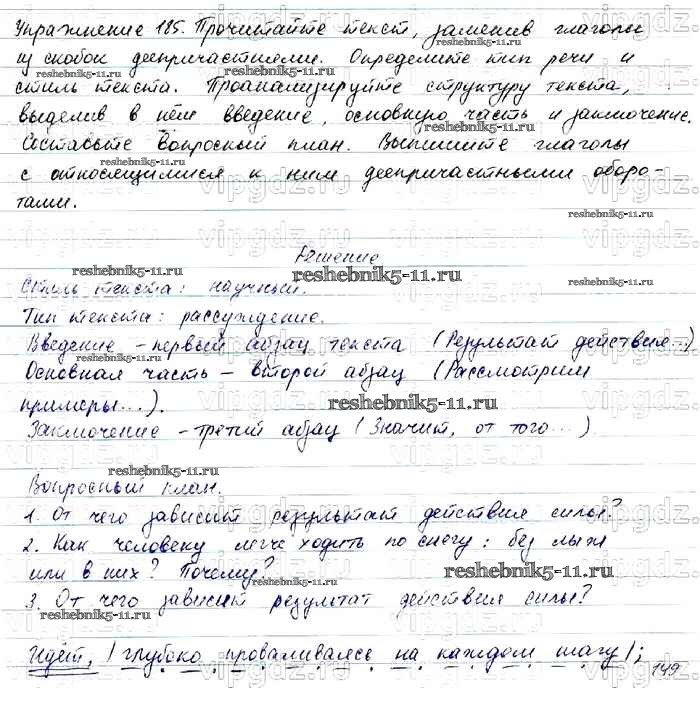 Упражнение 185. Прочитайте текст, заменив глаголы
из скобок деепричастиями. Определите тип речи и
стиль текста. Проанализируйте структуру текста,
выделив в нём введение, основную часть и заключение.
Составьте вопросный план. Выпишите глаголы
с относящимися к ним деепричастными оборо-
тами.
Решение
Стиль текста: научный.
Тип текста: рассуждение.
Введение - первый абзац текста (Результат действия...)
Основная часть - второй абзац (Рассмотрим
примеры...).
Заключение - третий абзац (Значит, от того...)
Вопросный план.
1. От чего зависит результат действия силы?
2. Как человеку легче ходить по снегу: без лыж
или в них? Почему?
3. От чего зависит результат действия силы?
Идёт, / глубоко проваливаясь на каждом шагу /;
149
reshebnik5-11.ru
vipgdz.ru